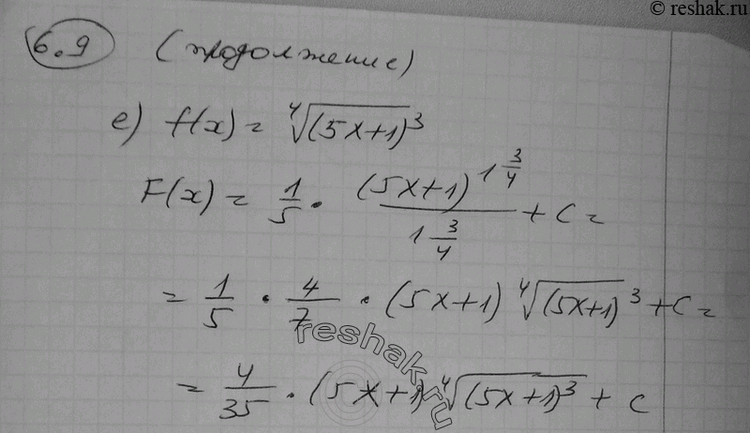 © reshak.ru
6.9 (продолжение)
е) f(x) = ∜(5x+1)³
F(x) = 1/5 · (5x+1)^(1 3/4) / (1 3/4) + C =
= 1/5 · 4/7 · (5x+1) ∜(5x+1)³ + C =
= 4/35 · (5x+1) ∜((5x+1)³) + C
reshak.ru